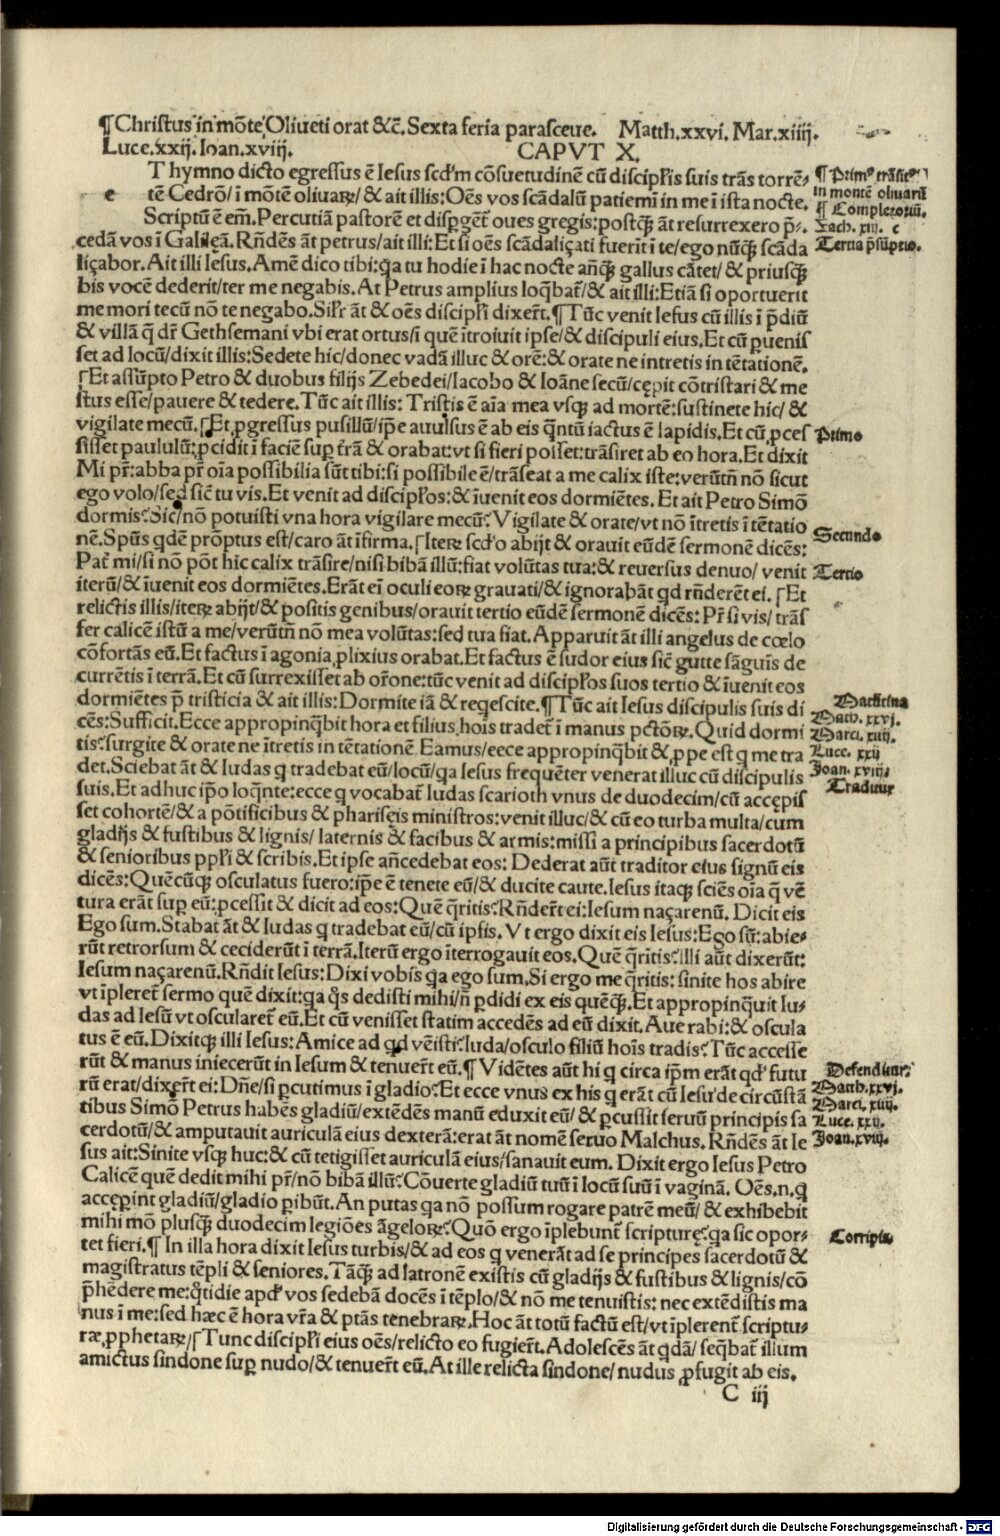 ¶Christus in mōte Oliueti orat &c̄. Sexta feria parasceue. Matth.xxvi. Mar.xiiij.
Luce.xxij. Ioan.xviij. CAPVT X.
T hymno dicto egressus ē Iesus scd'm cōsuetudinē cū discipl'is suis trās torrē⸗
e tē Cedrō/ ī mōtē oliuaꝝ/ & ait illis: Oēs vos scādalū patiemī in me ī ista nocte.
Scriptū ē em̄. Percutiā pastorē et disp̱gēt oues gregis: postqꝫ āt resurrexero p̄⸗
cedā vos ī Galileā. Rn̄dēs āt petrus/ait illi: Et si oēs scādaliçati fuerīt ī te/ego nūqꝫ scāda
liçabor. Ait illi Iesus. Amē dico tibi: qa tu hodie ī hac nocte an̄qꝫ gallus cātet/ & priusqꝫ
bis vocē dederit/ter me negabis. At Petrus amplius loq̄bat̄/& ait illi: Etiā si oportuerit
me mori tecū nō te negabo. Sil'r āt & oēs discipl'i dixer̄t. ¶Tūc venit Iesus cū illis ī p̄diū
& villā q̄ dr̄ Gethsemani vbi erat ortus/ī quē ītroiuit ipse/& discipuli eius. Et cū ꝑuenis
set ad locū/dixit illis: Sedete hic/donec vadā illuc & orē: & orate ne intretis in tētationē.
⌠Et assūpto Petro & duobus filijs Zebedei/Iacobo & Ioāne secū/cępit cōtristari & me
stus esse/pauere & tedere. Tūc ait illis: Tristis ē aīa mea vsqꝫ ad mortē: sustinete hic/ &
vigilate mecū. ⌠Et ꝓgressus pusillū/ip̄e auulsus ē ab eis q̄ntū iactus ē lapidis. Et cū ꝓces
sisset paululū: ꝓcidit ī faciē suꝑ tr̄ā & orabat: vt si fieri posset: trāsiret ab eo hora. Et dixit
Mi pr̄: abba pr̄ oīa possibilia sūt tibi: si possibile ē/trāseat a me calix iste: verūtn̄ nō sicut
ego volo/sed sic̄ tu vis. Et venit ad discipl'os: & īuenit eos dormiētes. Et ait Petro Simō
dormis: Sic/nō potuisti vna hora vigilare mecū: Vigilate & orate/vt nō ītretis ī tētatio
nē. Spūs qdē prōptus est/caro āt īfirma. ⌠Iteꝝ scd'o abijt & orauit eūdē sermonē dicēs:
Pat̄ mi/si nō pōt hic calix trāsire/nisi bibā illū: fiat volūtas tua: & reuersus denuo/ venit
iterū/& īuenit eos dormiētes. Erāt eī oculi eoꝝ grauati/& ignorabāt qd rn̄derēt ei. ⌠Et
relictis illis/iteꝝ abijt/& positis genibus/orauit tertio eūdē sermonē dicēs: Pr̄ si vis/ trās
fer calicē istū a me/verūtn̄ nō mea volūtas: sed tua fiat. Apparuit āt illi angelus de cœlo
cōfortās eū. Et factus ī agonia ꝓlixius orabat. Et factus ē sudor eius sic̄ gutte sāguīs de
currētis ī terrā. Et cū surrexisset ab or̄one: tūc venit ad discipl'os suos tertio & īuenit eos
dormiētes p̄ tristicia & ait illis: Dormite iā & reqescite. ¶Tūc ait Iesus discipulis suis di
cēs: Sufficit. Ecce appropinq̄bit hora et filius hoīs tradet̄ ī manus pctōꝝ. Quid dormi
tis: surgite & orate ne ītretis in tētationē. Eamus/ecce appropinq̄bit & ꝓpe est q me tra
det. Sciebat āt & Iudas q tradebat eū/locū/qa Iesus frequēter venerat illuc cū discipulis
suis. Et adhuc ip̄o loq̄nte: ecce q vocabat̄ Iudas scarioth vnus de duodecim/cū accępis
set cohortē/& a pōtificibus & pharisęis ministros: venit illuc/& cū eo turba multa/cum
gladijs & fustibus & lignis/ laternis & facibus & armis: missi a principibus sacerdotū
& senioribus ppl'i & scribis. Et ipse an̄cedebat eos: Dederat aūt traditor eius signū eis
dicēs: Quēcūqꝫ osculatus fuero: ip̄e ē tenete eū/& ducite caute. Iesus itaqꝫ sciēs oīa q̄ vē
tura erāt suꝑ eū: ꝓcessit & dicit ad eos: Quē q̄ritis: Rn̄der̄t ei: Iesum naçarenū. Dicit eis
Ego sum. Stabat āt & Iudas q tradebat eū/cū ipsis. Vt ergo dixit eis Iesus: Ego sū: abie⸗
rūt retrorsum & ceciderūt ī terrā. Iterū ergo īterrogauit eos. Quē q̄ritis: illi aūt dixerūt:
Iesum naçarenū. Rn̄dit Iesus: Dixi vobis qa ego sum. Si ergo me q̄ritis: sinite hos abire
vt īpleret̄ sermo quē dixit: qa q̄s dedisti mihi/n̄ ꝑdidi ex eis quēqꝫ. Et appropinq̄uit Iu⸗
das ad Iesū vt oscularet̄ eū. Et cū venisset statim accedēs ad eū dixit. Aue rabi: & oscula
tus ē eū. Dixitqꝫ illi Iesus: Amice ad qd vēisti: Iuda/osculo filiū hoīs tradis: Tūc accesse
rūt & manus iniecerūt in Iesum & tenuer̄t eū. ¶Vidētes aūt hi q circa ip̄m erāt qd' futu
rū erat/dixer̄t ei: Dn̄e/si ꝑcutimus ī gladio: Et ecce vnus ex his q erāt cū Iesu de circūstā
tibus Simō Petrus habēs gladiū/extēdēs manū eduxit eū/ & ꝑcussit seruū principis sa
cerdotū/& amputauit auriculā eius dexterā: erat āt nomē seruo Malchus. Rn̄dēs āt Ie
sus ait: Sinite vsqꝫ huc: & cū tetigisset auriculā eius/sanauit eum. Dixit ergo Iesus Petro
Calicē quē dedit mihi pr̄/nō bibā illū: Cōuerte gladiū tuū ī locū suū ī vaginā. Oēs.n.q
accęperint gladiū/gladio ꝑibūt. An putas qa nō possum rogare patrē meū/ & exhibebit
mihi mō plusqꝫ duodecim legiōes āgeloꝝ: Quō ergo īplebunt̄ scripturę: qa sic opor⸗
tet fieri. ¶In illa hora dixit Iesus turbis/& ad eos q venerāt ad se principes sacerdotū &
magistratus tēpli & seniores. Tāqꝫ ad latronē existis cū gladijs & fustibus & lignis/cō
p̄hēdere me: q̄tidie apd' vos sedebā docēs ī tēplo/& nō me tenuistis: nec extēdistis ma
nus ī me: sed hæc ē hora vr̄a & ptās tenebraꝝ. Hoc āt totū factū est/vt īplerent̄ scriptu⸗
ræ ꝓphetaꝝ/⌠Tunc discipl'i eius oēs/relicto eo fugier̄t. Adolescēs āt qdā/ seq̄bat̄ illum
amictus sindone suꝑ nudo/& tenuer̄t eū. At ille relicta sindone/ nudus ꝓfugit ab eis.
C iij
¶Prim⁹ trāsit⁹
in montē oliuarū
¶Completoriū.
Zach. xiij. c
Tertia p̄sūptio.
Primo
Secundo
Tertio
Matth. xxvj.
Marci. xiiij.
Luce. xxij
Ioan. xviij.
Traditur
Defenditur.
Matth. xxvj.
Marci. xiiij.
Luce. xxij.
Ioan. xviij.
Corripit
Digitalisierung gefördert durch die Deutsche Forschungsgemeinschaft - DFG